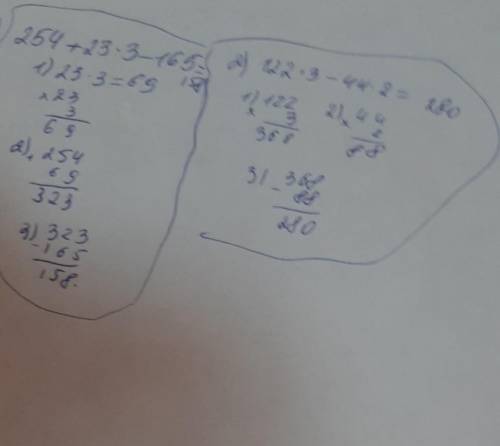 254+23·3-165=
158
1) 23·3=69
×23
3
69
2) +254
69
323
3) 323
-165
158.
2) 122·3-44·2= 280
1) ×122
3
368
2) ×44
2
88
3) -368
88
280